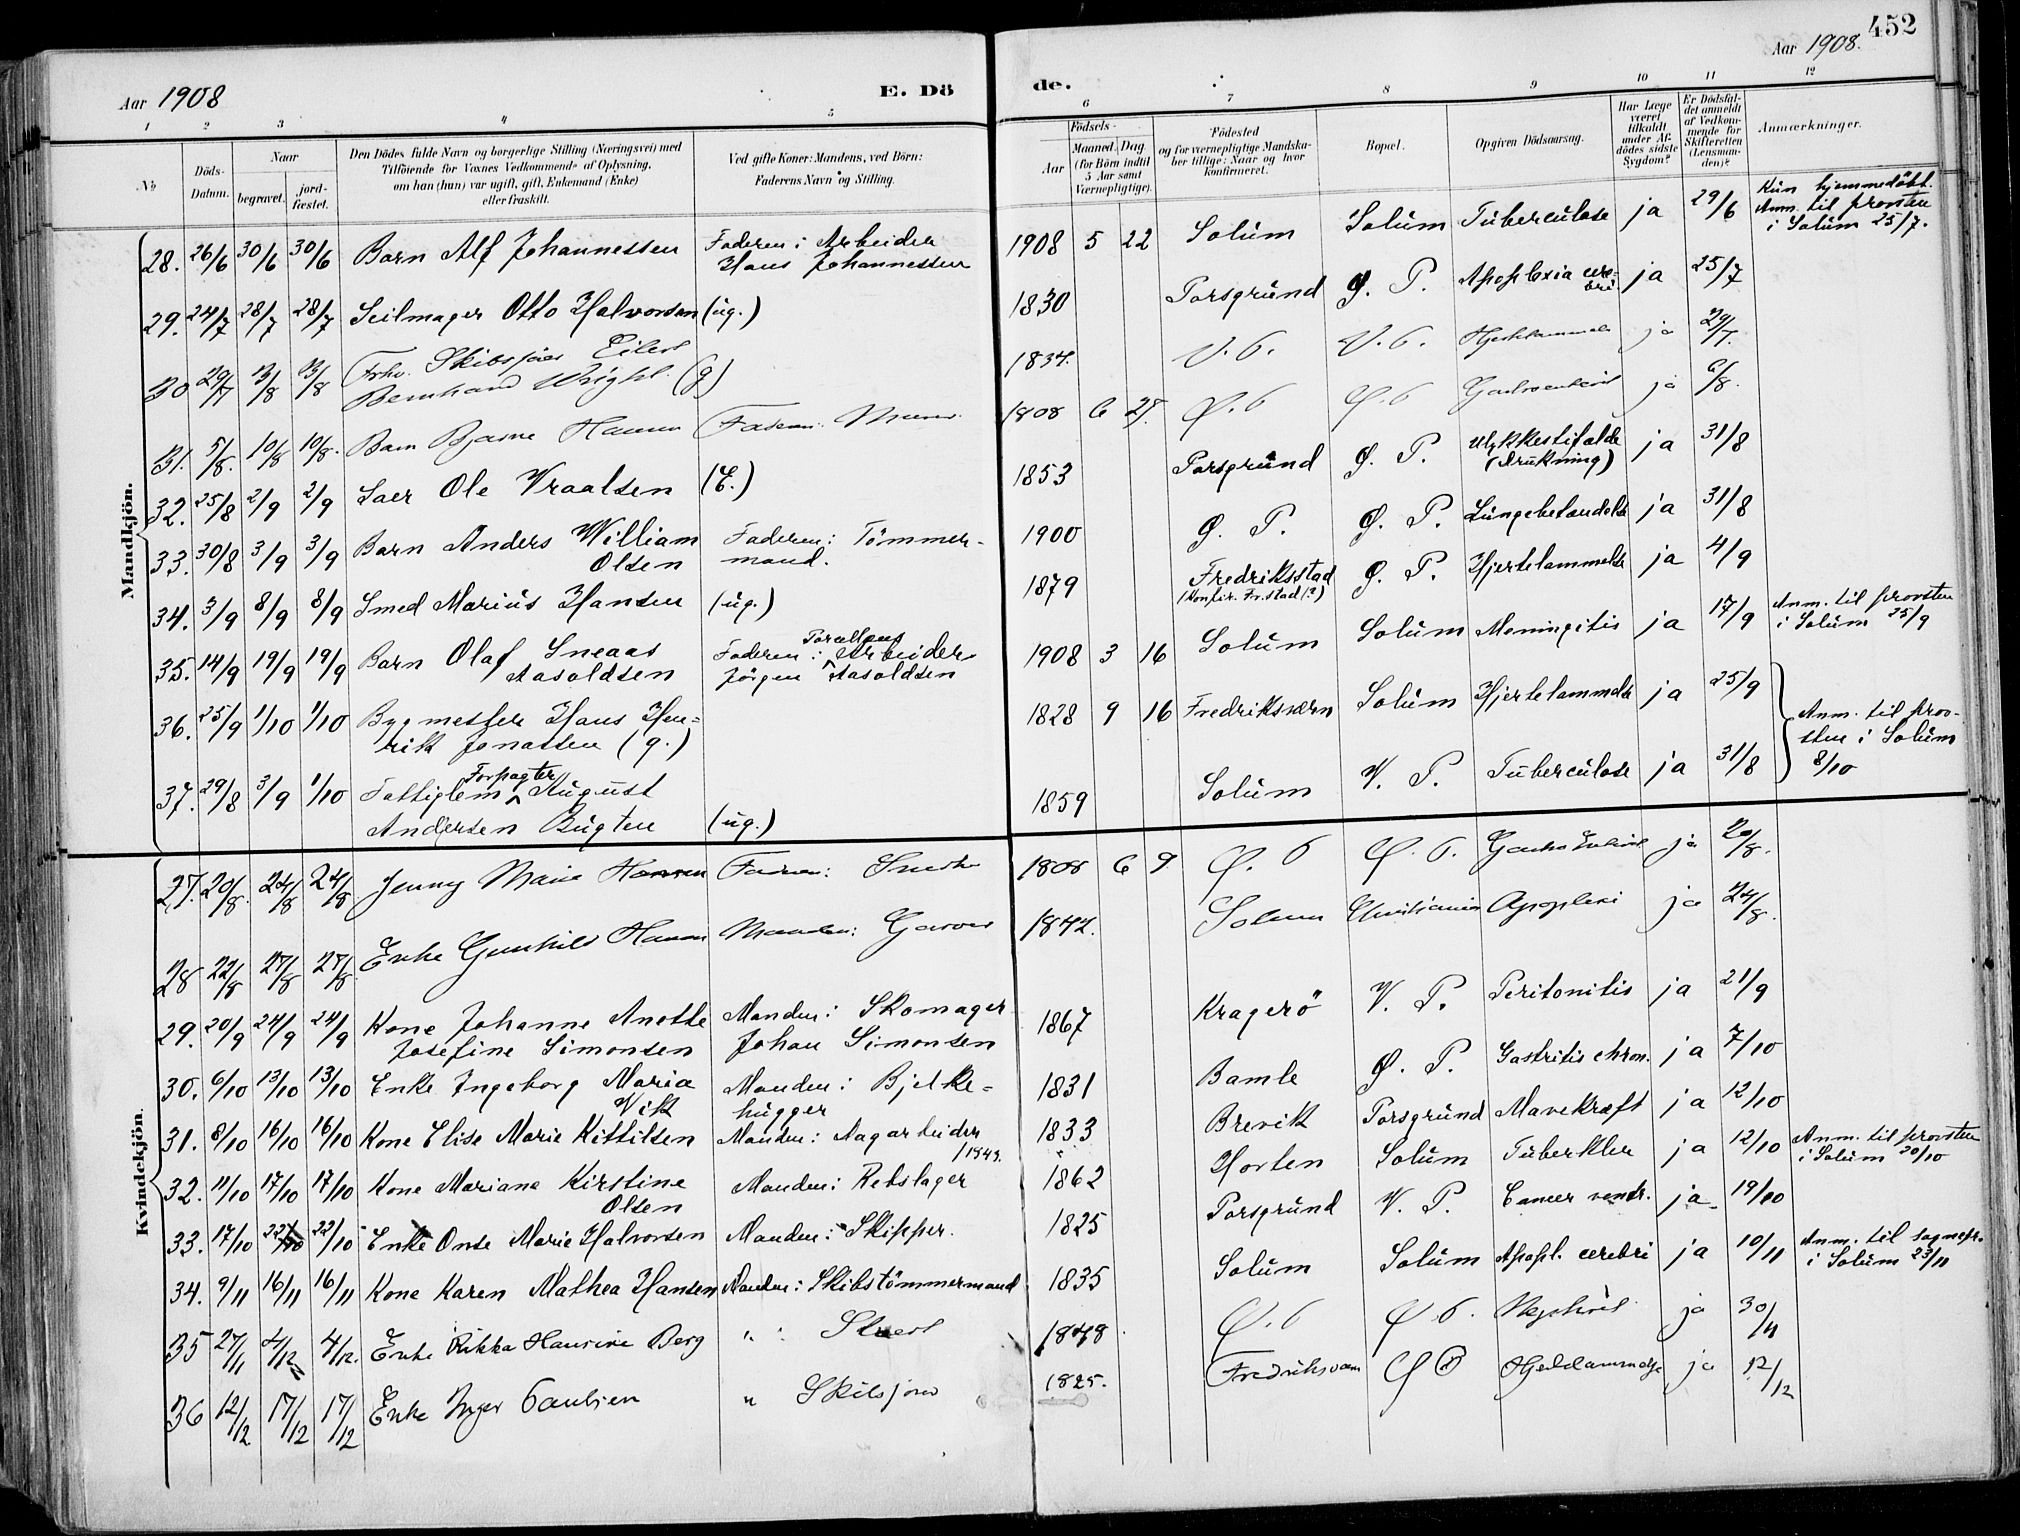 452
Aar 1908
E. Dö
de.
Aar 1908.
1 2 3 4 5 6 7 8 9 10 11 12
No
Döds-
Datum.
Naar
begravet.
jord-
fæstet.
Den Dödes fulde Navn og borgerlige Stilling (Næringsvei) med
Tilföiende for Voxnes Vedkommende af Oplysning,
om han (hun) var ugift, gift, Enkemand (Enke)
eller fraskilt.
Ved gifte Koner: Mandens, ved Börn:
Faderens Navn og Stilling.
Födsels-
Aar
Maaned. Dag.
(for Börn indtil
5 Aar samt
Værnepligtige).
Födested
og for værnepligtige Mandska-
ber tillige: Naar og hvor
konfirmeret.
Bopæl.
Opgiven Dödsaarsag.
Har Læge
været
tilkaldt
under Af-
dödes sidste
Sygdom?
Er Dödsfal-
det anmeldt
af Vedkom-
mende for
Skifteretten
(Lensman-
den)?
Anmærkninger.
Mandkjön.
28. 26/6 30/6 30/6 Barn Alf Johannessen Faderen: Arbeider 1908 5 22 Solum Solum Tuberculose ja 29/6 Kun hjemmedöbt.
Hans Johannessen Anm. til provsten
i Solum 25/7.
29. 24/7 28/7 28/7 Seilmager Otto Halvorsen (ug.) 1830 Porsgrund Ø. P. Apoplexia cere-
bri ja 25/7
30 29/7 3/8 3/8 Frhv. Skibsförer Eilert 1834. V. P. V. P. Hjertelammelse ja 29/7
Bernhard Wright. (g)
31. 5/8. 10/8 10/8. Barn Bjarne Hansen Faderen: Murer 1908 6 27. Ø. P Ø. P Gastroenterit ja 6/8.
32. 25/8 2/9 2/9 Saer Ole Vraalsen 1853 Porsgrund Ø. P. Ulykkestifælde ja 31/8
(Drukning)
33. 30/8 3/9 3/9 Barn Anders William Faderen: Tömmer- 1900 Ø. P. Ø. P. Lungebetændelse ja 31/8
Olsen mand.
34. 3/9 8/9 8/9 Smed Marius Hansen (ug.) 1879 Fredriksstad Ø. P. Hjertelammelse ja 4/9
(Konfir. Fr.stad (?)
35. 14/9 19/9 19/9 Barn Olaf Sneaas Faderen: Arbeider 1908 3 16 Solum Solum Meningitis ja 17/9 Anm. til provsten
Aasoldsen Jörgen Aasoldsen i Solum 25/9
36. 25/9 1/10 1/10 Bygmester Hans Hen- 1828 9 16 Fredriksværn Solum Hjertelammelse ja 25/9
rik Jonassen (g.)
Anm. til prov-
sten i Solum
8/10
37. 29/8 3/9 1/10 Fattiglem Forpagter August 1859 Solum V. P. Tuberculose ja 31/8
Andersen Bugten (ug.)
Kvindekjön.
27. 20/8. 24/8 24/8 Jenny Marie Hansen Faderen: Snedker 1908 6 9 Ø. P Ø. P. ja 20/8.
28 22/8 27/8 27/8. Enke Gunhild Hansen Manden: Garver 1842. Solum Christiania Apoplexi ja 24/8.
29. 20/9 24/9 24/9 Kone Johanne Anette Manden: Skomager 1867 Kragerö V. P. Peritonitis ja 21/9
Josefine Simonsen Johan Simonsen
30. 6/10 13/10 13/10 Enke Ingeborg Maria Manden: Bjelke- 1831 Bamle Ø. P. Gastritis chron. ja 7/10
Vik hugger
31. 8/10 16/10 16/10 Kone Elise Marie Kittilsen Manden: Sagarbeider 1833 Brevik Porsgrund Mavekræft ja 12/10
32. 11/10 17/10 17/10 Kone Mariane Kirstine Manden: Rebslager 1862 Horten Solum Tuberkler ja 12/10 Anm. til provsten
Olsen i Solum 20/10
33. 17/10 22/10 22/10 Enke Onse Marie Halvorsen Manden: Skipper. 1825 Porsgrund V. P. Cancer ventr. ja 19/10
34. 9/11 16/11 16/11 Kone Karen Mathea Hansen Manden: Skibstömmermand 1835 Solum Solum Apopl. cerebri ja 10/11 Anm. til sognepr.
i Solum 23/11
35 27/11 4/12 4/12. Enke Rikka Hansine Berg " " 1848. Ø. P Ø P. ja 30/11
36 12/12 17/12 17/12 Enke Inger Paulsen " Skibsförer 1825. Fredriksværn Ø P Hjertelammelse ja 12/12